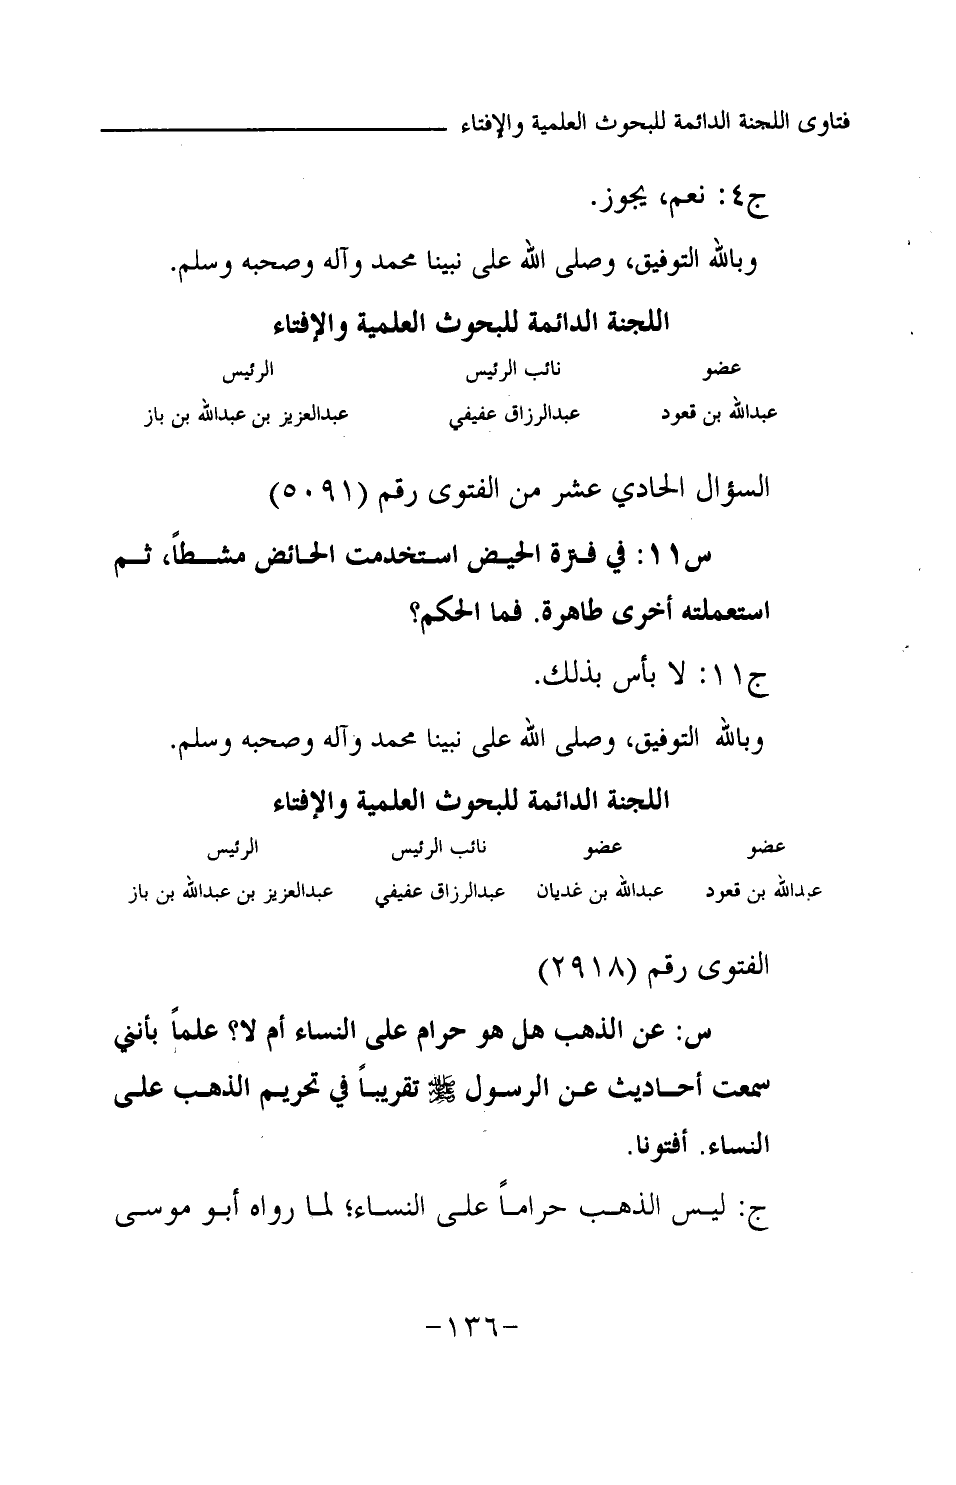 فتاوى اللجنة الدائمة للبحوث العلمية والإفتاء
ج٤: نعم، يجوز.
وبالله التوفيق، وصلى الله على نبينا محمد وآله وصحبه وسلم.
اللجنة الدائمة للبحوث العلمية والإفتاء
عضو نائب الرئيس الرئيس
عبدالله بن قعود عبدالرزاق عفيفي عبدالعزيز بن عبدالله بن باز
السؤال الحادي عشر من الفتوى رقم (٥٠٩١)
س١١: في فترة الحيض استخدمت الحائض مشطاً، ثم
استعملته أخرى طاهرة. فما الحكم؟
ج١١: لا بأس بذلك.
وبالله التوفيق، وصلى الله على نبينا محمد وآله وصحبه وسلم.
اللجنة الدائمة للبحوث العلمية والإفتاء
عضو عضو نائب الرئيس الرئيس
عبدالله بن قعود عبدالله بن غديان عبدالرزاق عفيفي عبدالعزيز بن عبدالله بن باز
الفتوى رقم (٢٩١٨)
س: عن الذهب هل هو حرام على النساء أم لا؟ علماً بأنني
سمعت أحاديث عن الرسول ﷺ تقريباً في تحريم الذهب على
النساء. أفتونا.
ج: ليس الذهب حراماً على النساء؛ لما رواه أبو موسى
-١٣٦-